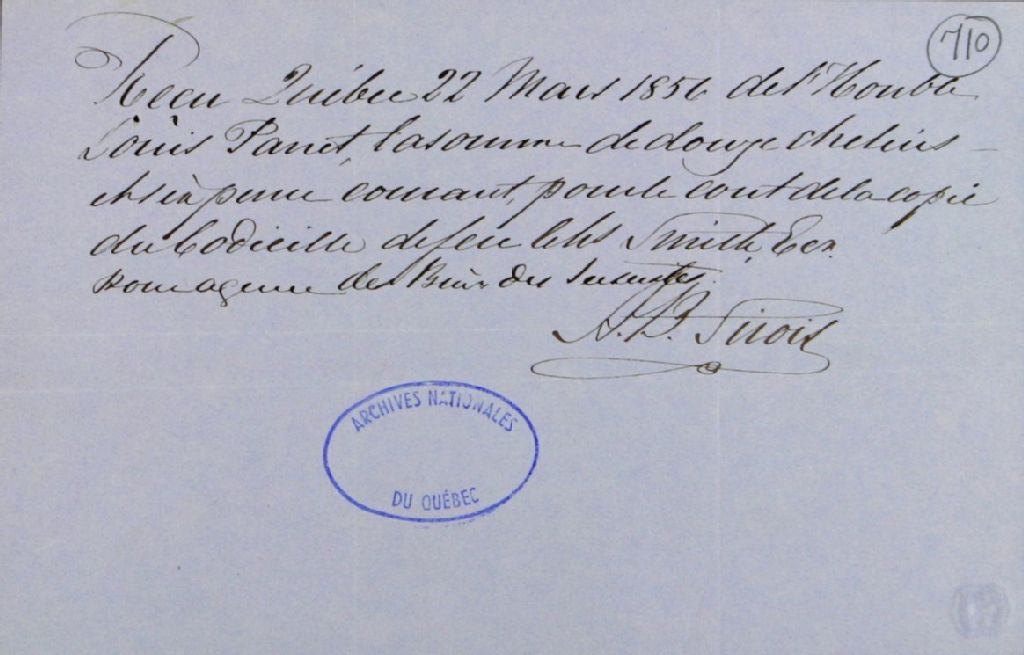 710
Recu Québec 22 Mars 1856 de l'Honble
Louis Panet la somme de douze chelins
et six pence courant, pour le cout de la copie
du Codicille de feu Chs Smith, Ecr.
des Biens des Jesuites.
A. B. Sirois
ARCHIVES NATIONALES
DU QUÉBEC